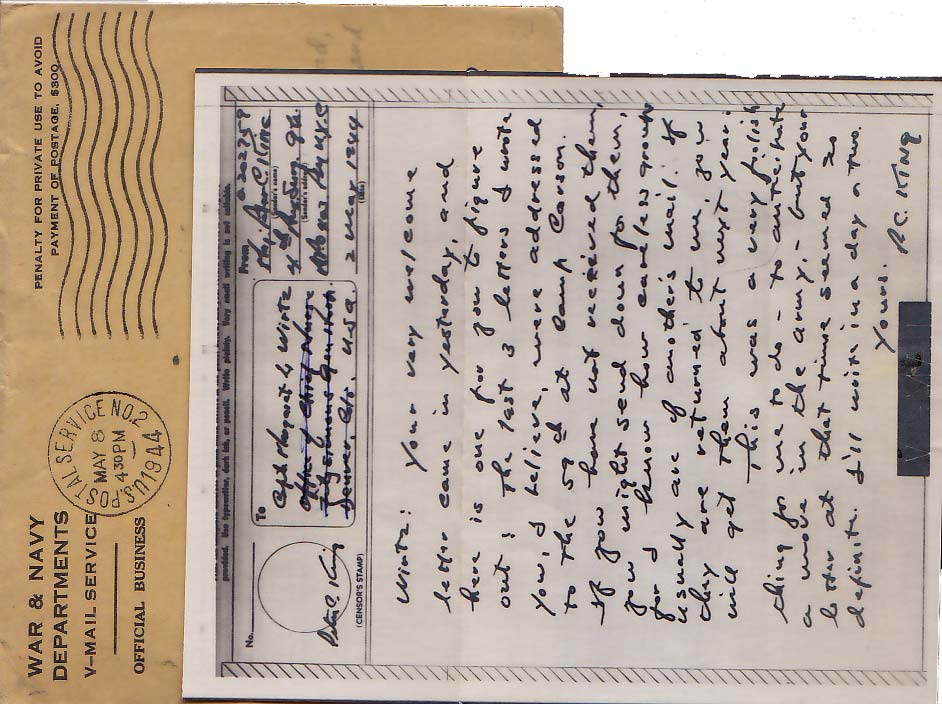 WAR & NAVY
DEPARTMENTS
V-MAIL SERVICE
OFFICIAL BUSINESS
U.S. POSTAL SERVICE NO. 2
MAY 8
4 30 PM
1944
PENALTY FOR PRIVATE USE TO AVOID
PAYMENT OF POSTAGE, $300
provided. Use typewriter, dark ink, or pencil. Write plainly. Very small writing is not suitable.
No.
(CENSOR'S STAMP)
To
Capt Margaret L Wirtz
Office of Chief Nurse
Fitzsimons Gen Hosp.
Denver, Colo. USA
From
(Sender's name)
(Sender's address)
2 May 1944
(Date)
Wirtz: Your very welcome
letter came in yesterday, and
here is one for you to figure
out: The last 3 letters I wrote
you, I believe, were addressed
to the 59th at Camp Carson.
If you have not received them,
you might send down for them,
for I know how careless groups
usually are of another's mail. If
they are returned to me, you
will get them about next year.
This was a very foolish
thing for me to do - to anticipate
a move in the army - but your
letter at that time seemed so
definite. I'll write in a day or two.
Yours. P.C. KING